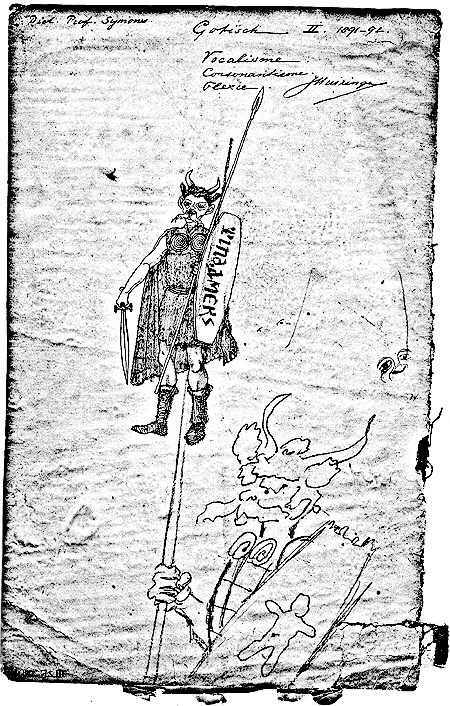 Dict. Prof. Symons
Gotisch II. 1891-92
Vocalisme
Consonantisme
Flexie
JHuizinga